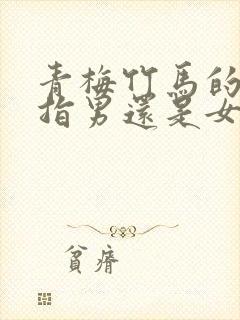 青梅竹馬的
指男還是女
貧瘠